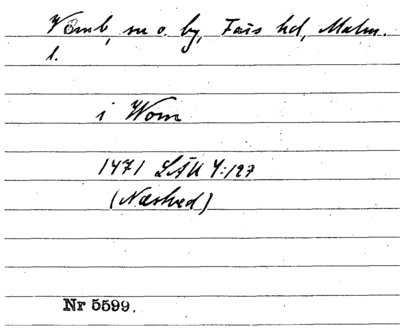 Vomb, sn o. by, Färs hd, Malm.
l.
i Wom
1471 LÄU 4:127
(Næstved)
Nr 5599.